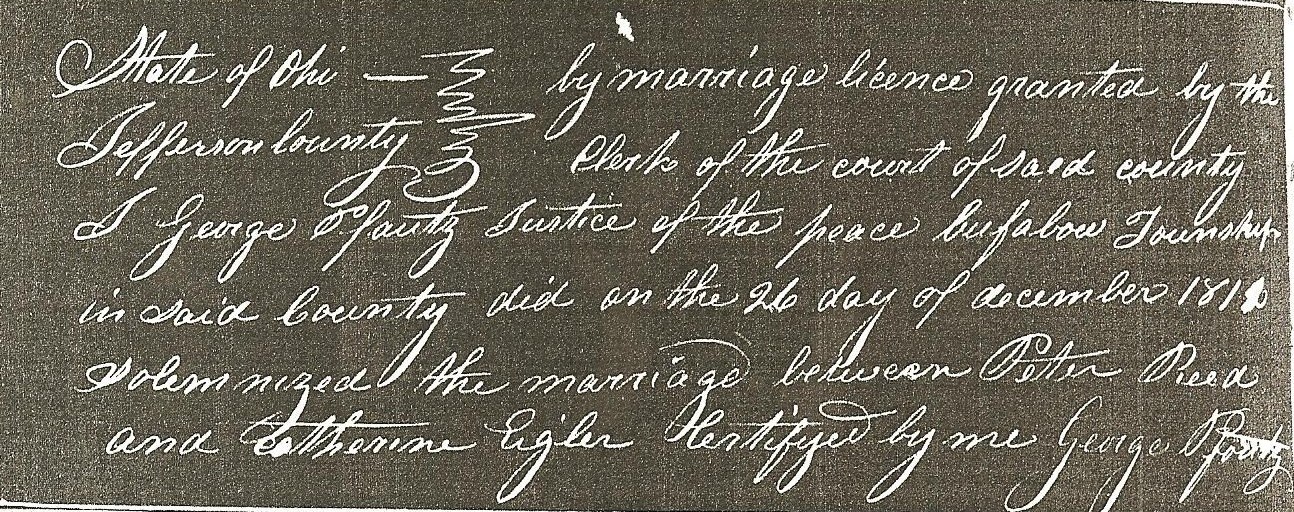 State of Ohi — by marriage licence granted by the
Jefferson County Clerk of the court of said county
I George Pfautz Justice of the peace bufalow Township
in said County did on the 26 day of december
solemnized the marriage between Peter Reed
and Catherine Eigler Certifyed by me George Pfoutz